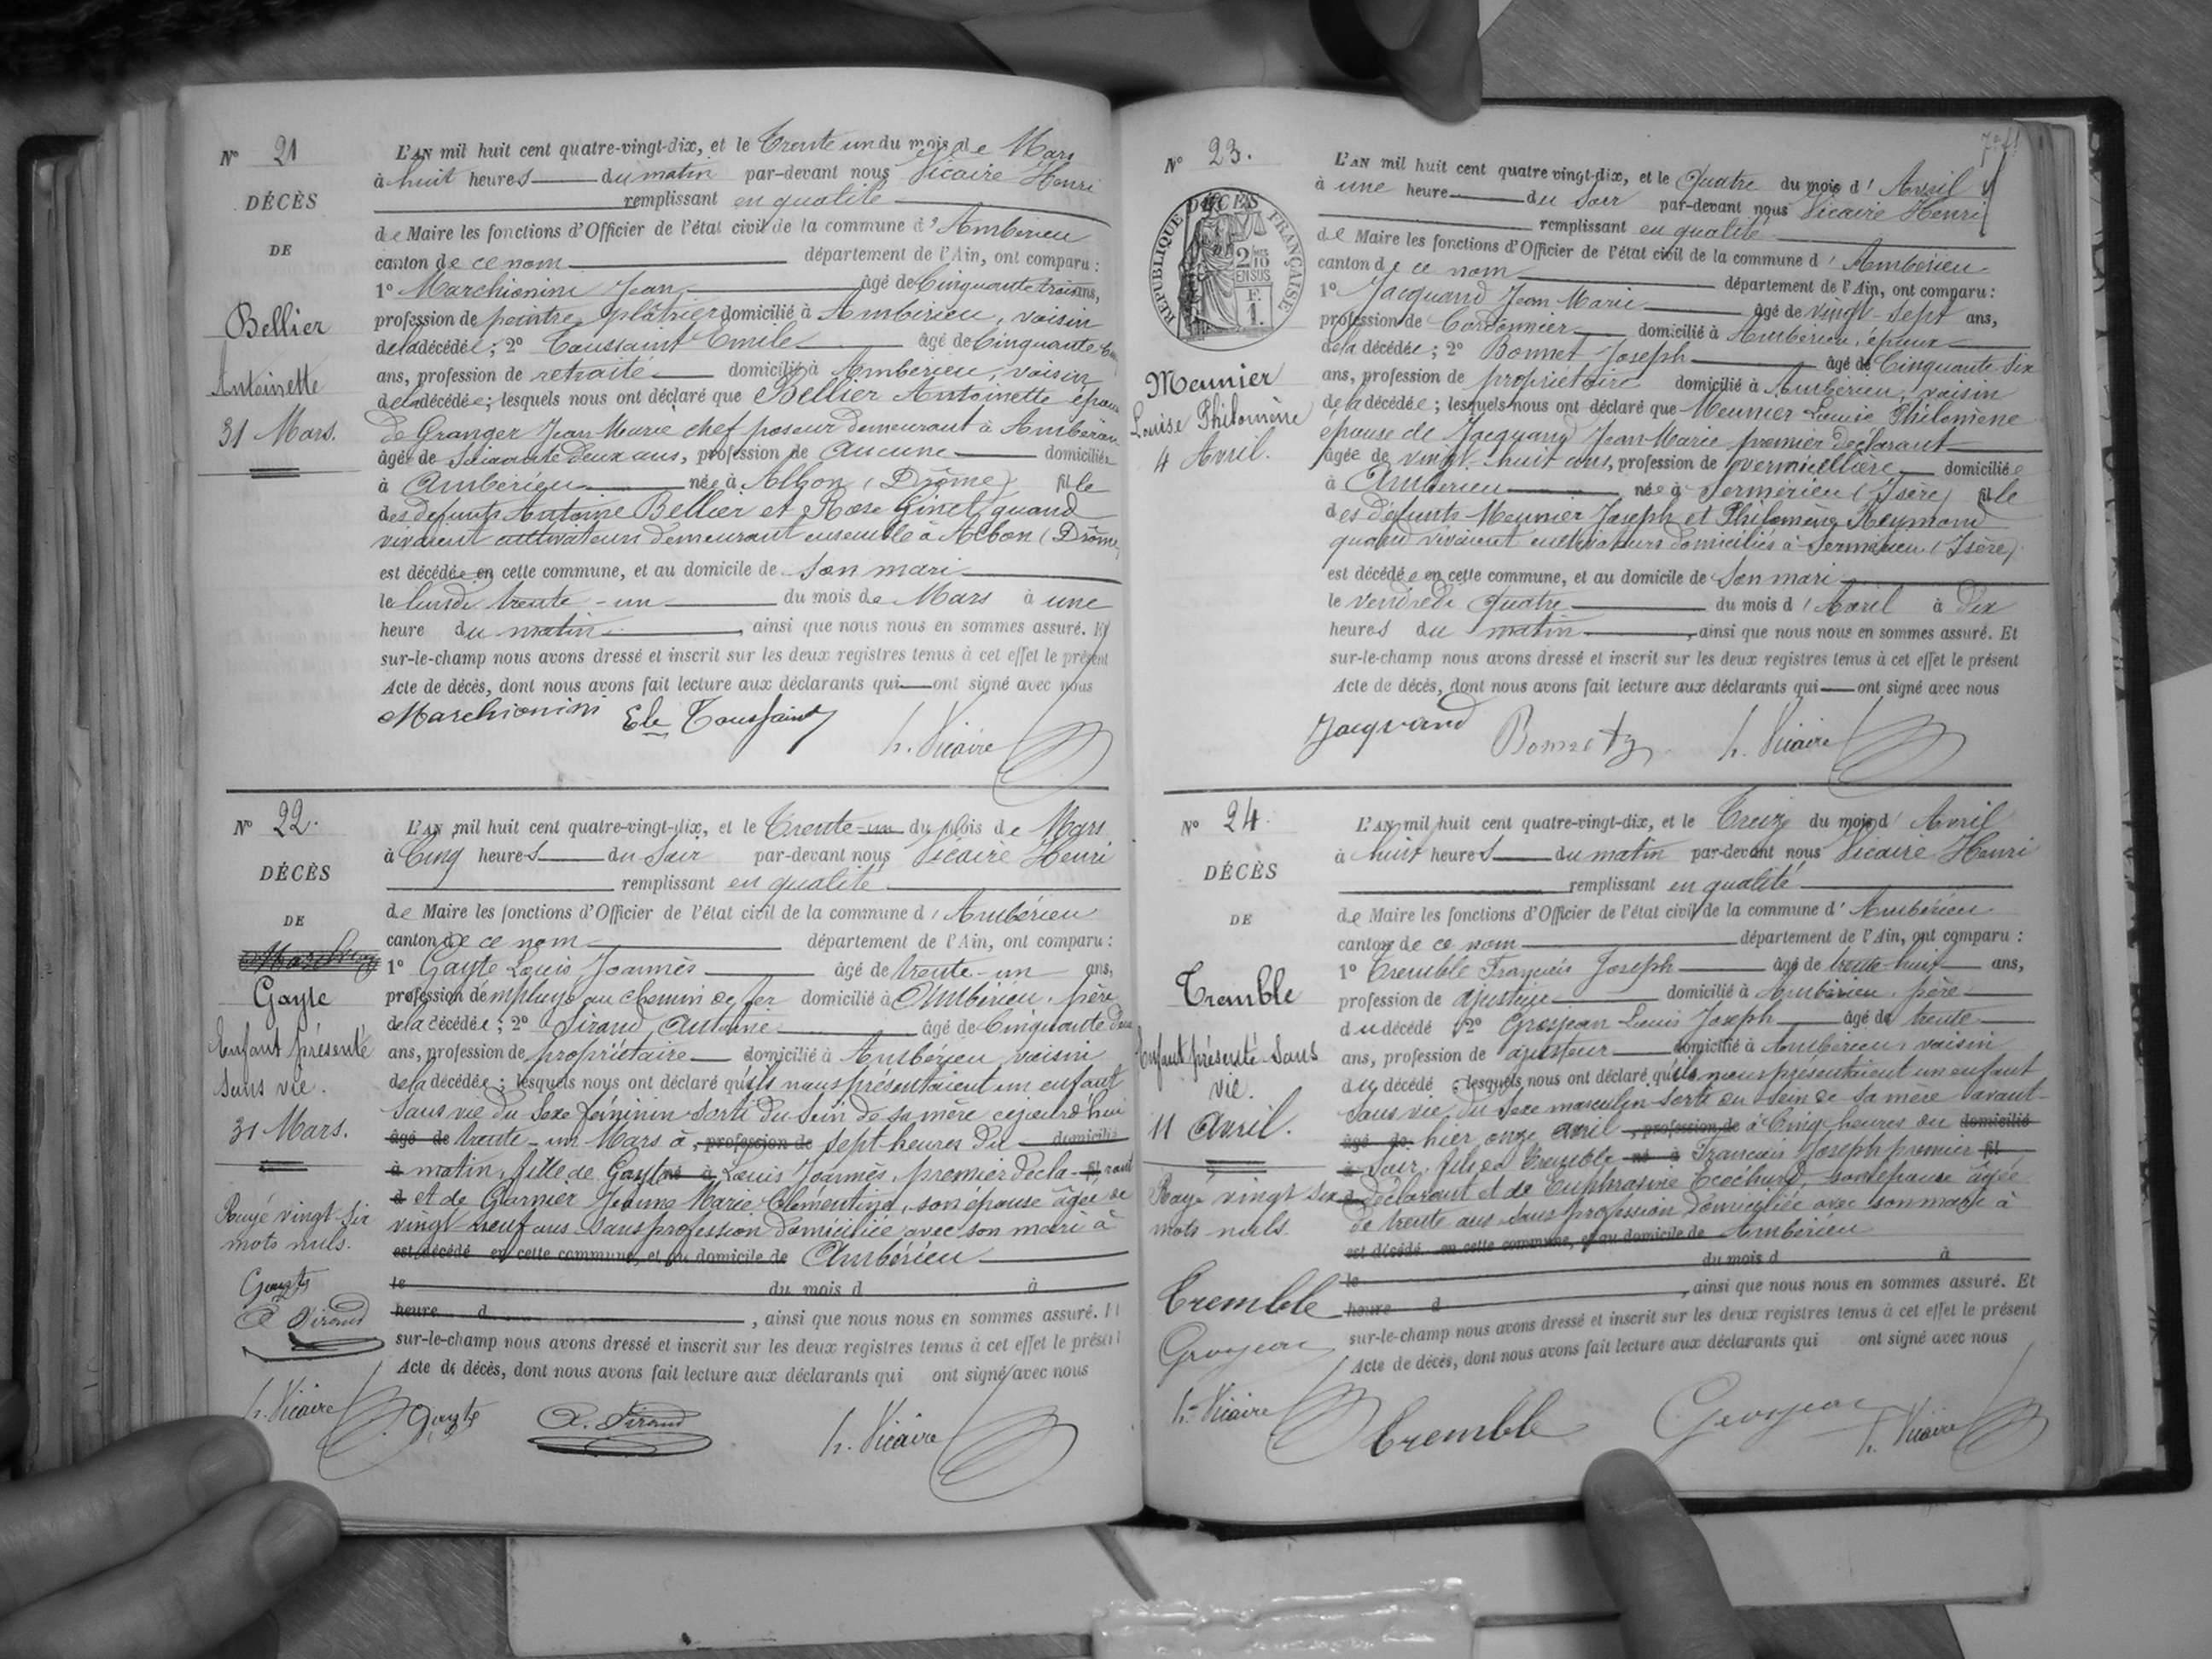 N° 21
DÉCÈS
DE
Bellier
Antoinette
31 Mars.
L'AN mil huit cent quatre-vingt-dix, et le Trente un du mois de Mars
à huit heures du matin par-devant nous Vicaire Henri
remplissant en qualité
de Maire les fonctions d'Officier de l'état civil de la commune d'Ambérieu
canton de ce nom département de l'Ain, ont comparu :
1° Marchionini Jean âgé de Cinquante trois ans,
profession de peintre plâtrier domicilié à Ambérieu, voisin
de la décédée ; 2° Toussaint Emile âgé de Cinquante
ans, profession de retraité domicilié à Ambérieu, voisin
de la décédée ; lesquels nous ont déclaré que Bellier Antoinette épouse
de Granger Jean Marie chef poseur demeurant à Ambérieu
âgée de Soixante deux ans, profession de aucune domiciliée
à Ambérieu née à Albon (Drôme) fille
des défunts Antoine Bellier et Rose Ginet, quand
vivaient cultivateurs demeurant ensemble à Albon (Drôme)
est décédée en cette commune, et au domicile de son mari
le lundi trente-un du mois de Mars à une
heure du matin, ainsi que nous nous en sommes assuré. Et
sur-le-champ nous avons dressé et inscrit sur les deux registres tenus à cet effet le présent
Acte de décès, dont nous avons fait lecture aux déclarants qui ont signé avec nous
Marchionini Ele Toussaint h. Vicaire
N° 22.
DÉCÈS
DE
Gayte
Enfant présenté
sans vie.
31 Mars.
Rayé vingt-six
mots nuls.
Gayte
A. Sirand
h. Vicaire
L'AN mil huit cent quatre-vingt-dix, et le Trente-un du mois de Mars
à Cinq heures du soir par-devant nous Vicaire Henri
remplissant en qualité
de Maire les fonctions d'Officier de l'état civil de la commune d'Ambérieu
canton de ce nom département de l'Ain, ont comparu :
1° Gayte Louis Joannès âgé de trente-un ans,
profession d'employé au chemin de fer domicilié à Ambérieu, père
de la décédée ; 2° Sirand Antoine âgé de Cinquante deux
ans, profession de propriétaire domicilié à Ambérieu voisin
de la décédée ; lesquels nous ont déclaré qu'ils nous présentaient un enfant
sans vie du sexe féminin sorti du sein de sa mère cejourd'hui
âgé de trente-un Mars à , profession de sept heures du domicilié
à matin, fille de Gayte né à Louis Joannès, premier décla- fil rant
d et de Garnier Jeanne Marie Clémentine, son épouse âgée de
vingt-neuf ans sans profession domiciliée avec son mari à
est décédé en cette commune, et au domicile de Ambérieu
le du mois d à
heure d , ainsi que nous nous en sommes assuré. Et
sur-le-champ nous avons dressé et inscrit sur les deux registres tenus à cet effet le présent
Acte de décès, dont nous avons fait lecture aux déclarants qui ont signé avec nous
Gayte A. Sirand h. Vicaire
N° 23.
DÉCÈS
RÉPUBLIQUE FRANÇAISE
2/10 EN SUS
F. 1.
Meunier
Louise Philomène
4 Avril.
L'AN mil huit cent quatre vingt-dix, et le Quatre du mois d'Avril
à une heure du soir par-devant nous Vicaire Henri
remplissant en qualité
de Maire les fonctions d'Officier de l'état civil de la commune d'Ambérieu
canton de ce nom département de l'Ain, ont comparu :
1° Jacquand Jean Marie âgé de vingt-sept ans,
profession de Cordonnier domicilié à Ambérieu, époux
de la décédée ; 2° Bonnet Joseph âgé de Cinquante-six
ans, profession de propriétaire domicilié à Ambérieu, voisin
de la décédée ; lesquels nous ont déclaré que Meunier Louise Philomène
épouse de Jacquand Jean Marie premier déclarant
âgée de vingt-huit ans, profession de vermicellière domiciliée
à Ambérieu née à Sermérieu (Isère) fille
des défunts Meunier Joseph et Philomène Reymond
quand vivaient cultivateurs domiciliés à Sermérieu (Isère).
est décédée en cette commune, et au domicile de son mari
le vendredi quatre du mois d'Avril à dix
heures du matin, ainsi que nous nous en sommes assuré. Et
sur-le-champ nous avons dressé et inscrit sur les deux registres tenus à cet effet le présent
Acte de décès, dont nous avons fait lecture aux déclarants qui ont signé avec nous
Jacquand Bonnet h. Vicaire
N° 24.
DÉCÈS
DE
Tremble
Enfant présenté sans
vie.
11 Avril.
Rayé vingt six
mots nuls
Tremble
Grosjean
h. Vicaire
L'AN mil huit cent quatre-vingt-dix, et le Treize du mois d'Avril
à huit heures du matin par-devant nous Vicaire Henri
remplissant en qualité
de Maire les fonctions d'Officier de l'état civil de la commune d'Ambérieu
canton de ce nom département de l'Ain, ont comparu :
1° Tremble François Joseph âgé de trente-huit ans,
profession de ajusteur domicilié à Ambérieu, père
du décédé 2° Grosjean Louis Joseph âgé de trente
ans, profession de ajusteur domicilié à Ambérieu, voisin
du décédé ; lesquels nous ont déclaré qu'ils nous présentaient un enfant
sans vie, du sexe masculin sorti du sein de sa mère avant-
âgé de hier onze avril , profession de à Cinq heures du domicilié
à soir, fils de Tremble né à François Joseph premier fil
d déclarant et de Euphrasine son épouse âgée
de trente ans sans profession domiciliée avec son mari à
est décédé en cette commune, et au domicile de Ambérieu
le du mois d à
heure d , ainsi que nous nous en sommes assuré. Et
sur-le-champ nous avons dressé et inscrit sur les deux registres tenus à cet effet le présent
Acte de décès, dont nous avons fait lecture aux déclarants qui ont signé avec nous
Tremble Grosjean h. Vicaire